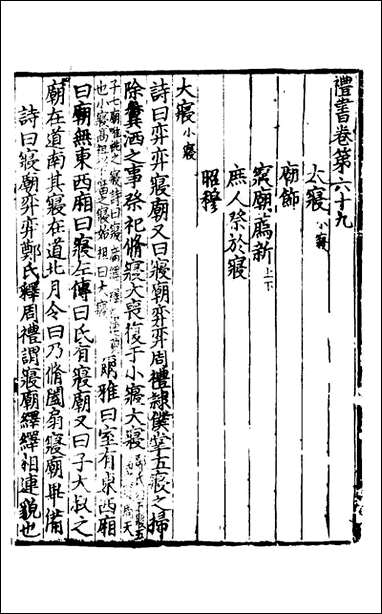 禮書卷第六十九
太寢小寢
廟飾
寢廟薦新上下
庶人祭於寢
昭穆
大寢小寢
詩曰奕奕寢廟又曰寢廟弈弈周禮隷僕掌五寢之掃
除糞洒之事祭祀脩寢大喪復于小寢大寢
子七廟唯祧無寢詩曰寢廟繹繹相連貌
也小寢高祖以下廟之寢始祖曰大寢
爾雅曰室有東西廂
曰廟無東西廂曰寢左傳曰民有寢廟又曰子大叔之
廟在道南其寢在道北月令曰乃脩闔扇寢廟畢備
詩曰寢廟弈弈鄭氏釋周禮謂寢廟繹繹相連貌也